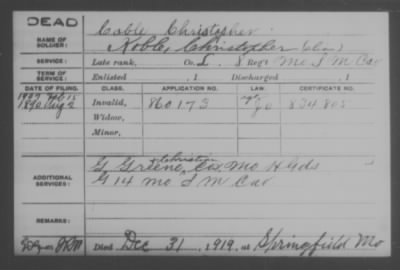 DEAD
NAME OF SOLDIER:
Coble, Christopher
Koble, Christopher
SERVICE:
Late rank, Co. L. 8 Reg't Mo S M Cav
TERM OF SERVICE:
Enlisted , 1 Discharged , 1
DATE OF FILING. CLASS. APPLICATION NO. LAW. CERTIFICATE NO.
1890 Aug 2 Invalid, 860173 834805
Widow,
Minor,
Christian
ADDITIONAL SERVICES:
G Greene, Cos. Mo H Gds
G 14 Mo S M Cav
REMARKS:
Died Dec 31, 1919, at Springfield Mo